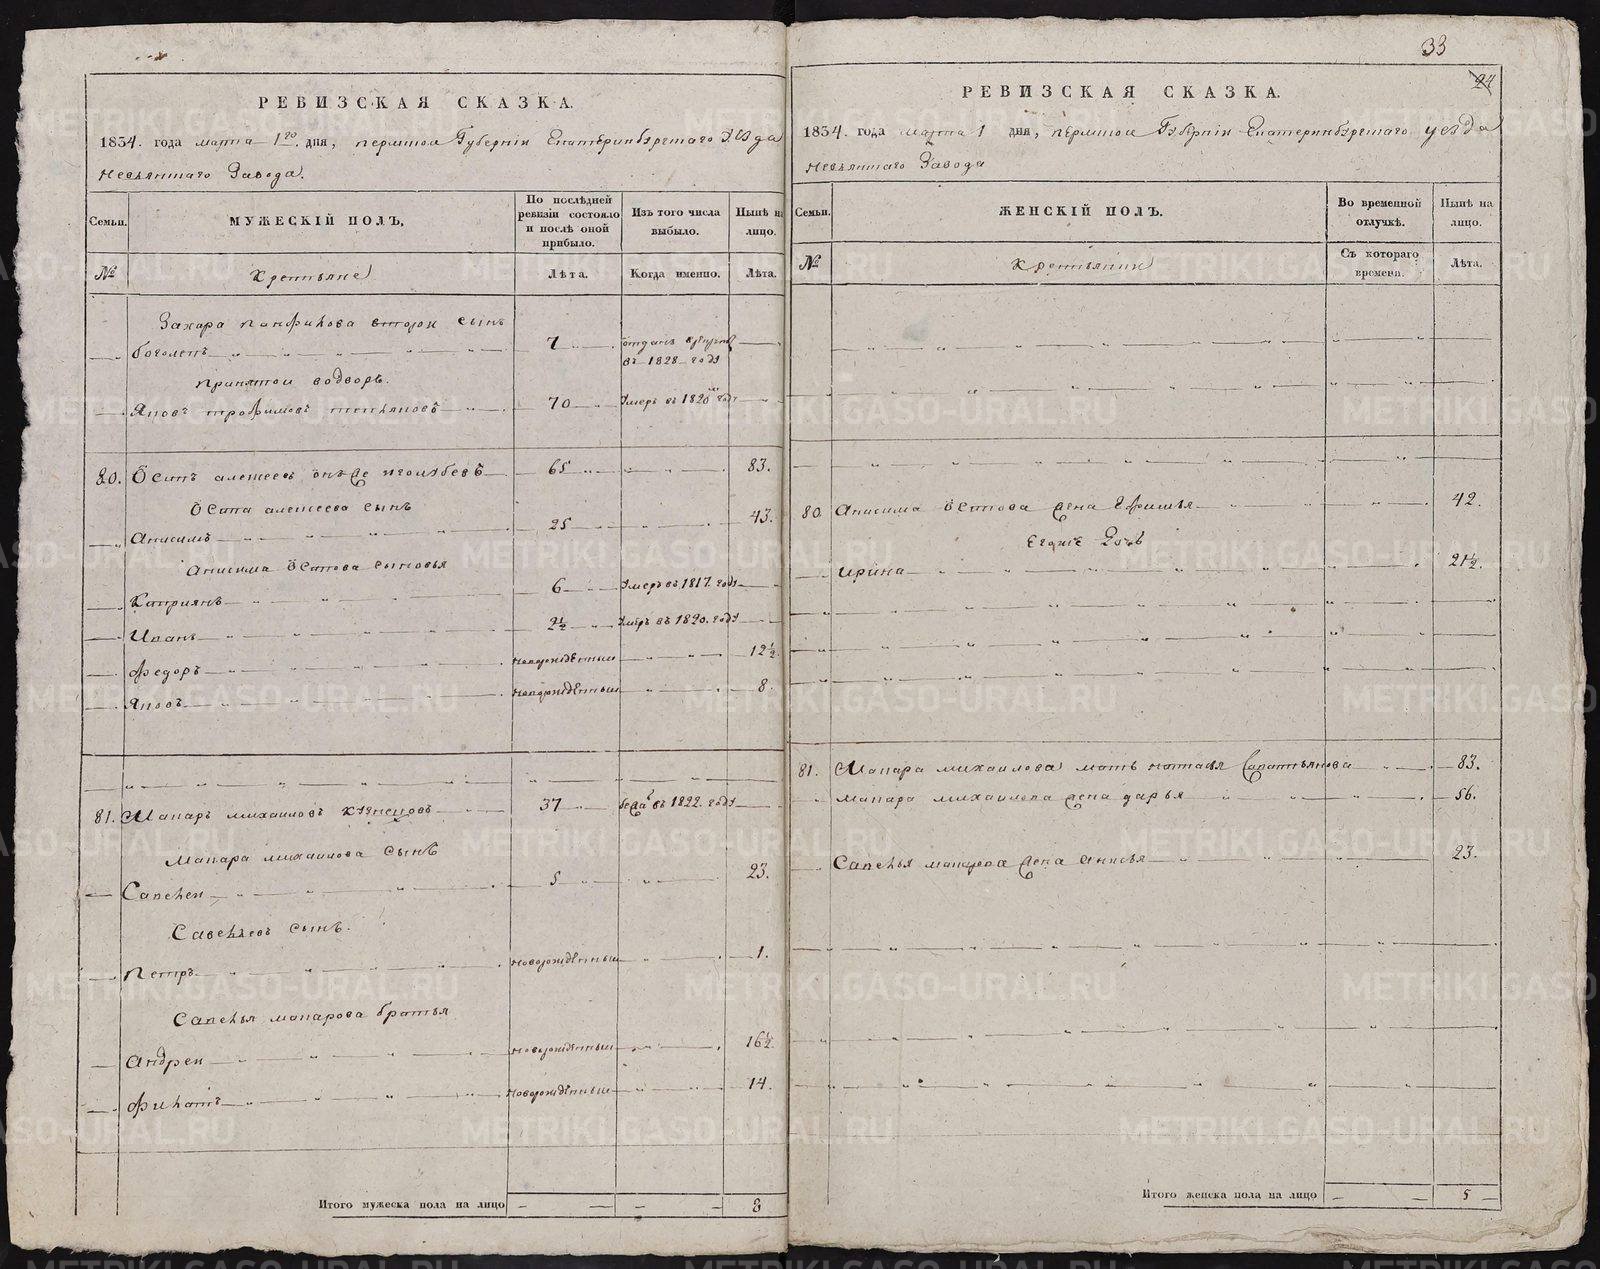 33
РЕВИЗСКАЯ СКАЗКА.
1834. года марта 1го. дня, пермской Губерніи Екатеринбургскаго Уѣзда
Невьянскаго Завода.
Семьи.
МУЖЕСКІЙ ПОЛЪ,
По послѣдней ревизіи состояло и послѣ оной прибыло.
Изъ того числа выбыло.
Нынѣ на лицо.
№
Крестьяне
Лѣта.
Когда именно.
Лѣта.
Захара панфилова второй сынъ
7 отданъ
въ 1828 году
принятой водворъ.
Яковъ трофимовъ 70 Умеръ въ 1820 году
80. Осипъ алексеевъ 65 83.
Осипа алексеева сынъ
Анисимъ 25 43.
Анисима Осипова сыновья
Каприянъ 6 Умеръ въ 1817. году
Иванъ 2½ Умеръ въ 1820. году
Федоръ новорожденный 12½
Яковъ новорожденный 8.
81. Макаръ михаиловъ кузнецовъ 37 въ 1822. году
Макара михаилова сынъ
Савелеи 5 23.
Савельевъ сынъ.
Петръ новорожденный 1.
Савелья макарова братья
Андреи новорожденный 16½
Филатъ новорожденный 14.
Итого мужеска пола на лицо 8
24
РЕВИЗСКАЯ СКАЗКА.
1834. года марта 1 дня, пермской Губерніи Екатеринбургскаго уезда
Невьянскаго Завода
Семьи.
ЖЕНСКІЙ ПОЛЪ.
Во временной отлучкѣ.
Нынѣ на лицо.
№
Крестьянки
Съ котораго времени.
Лѣта.
80 Анисима Осипова жена Ефимья 42.
Егоже Дочь
ирина 21½.
81. Макара михаилова мать наталья 83.
макара михаилова жена дарья 56.
Савелья макарова жена анисья 23.
Итого женска пола на лицо 5
METRIKI.GASO-URAL.RU